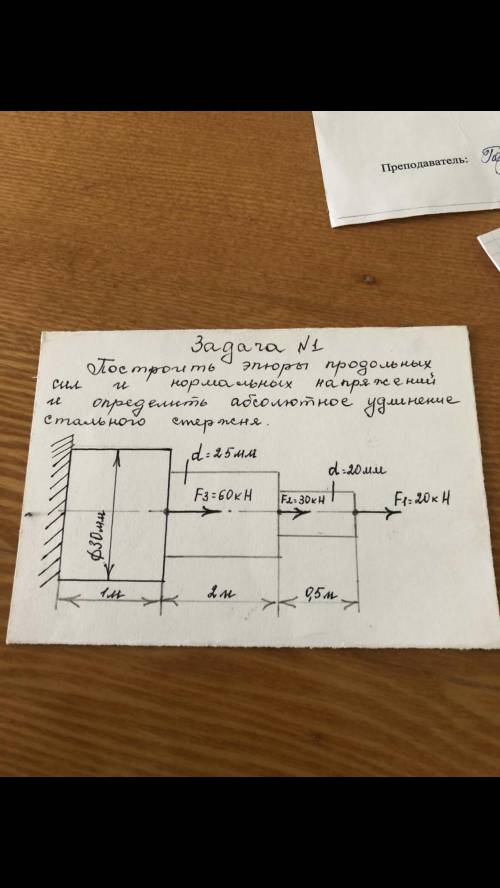 Преподаватель:
Задача №1
Построить эпюры продольных
сил и нормальных напряжений
и определить абсолютное удлинение
стального стержня.
d=25мм
d=20мм
F3=60кН
F2=30кН
F1=20кН
ϕ30мм
1м
2м
0,5м